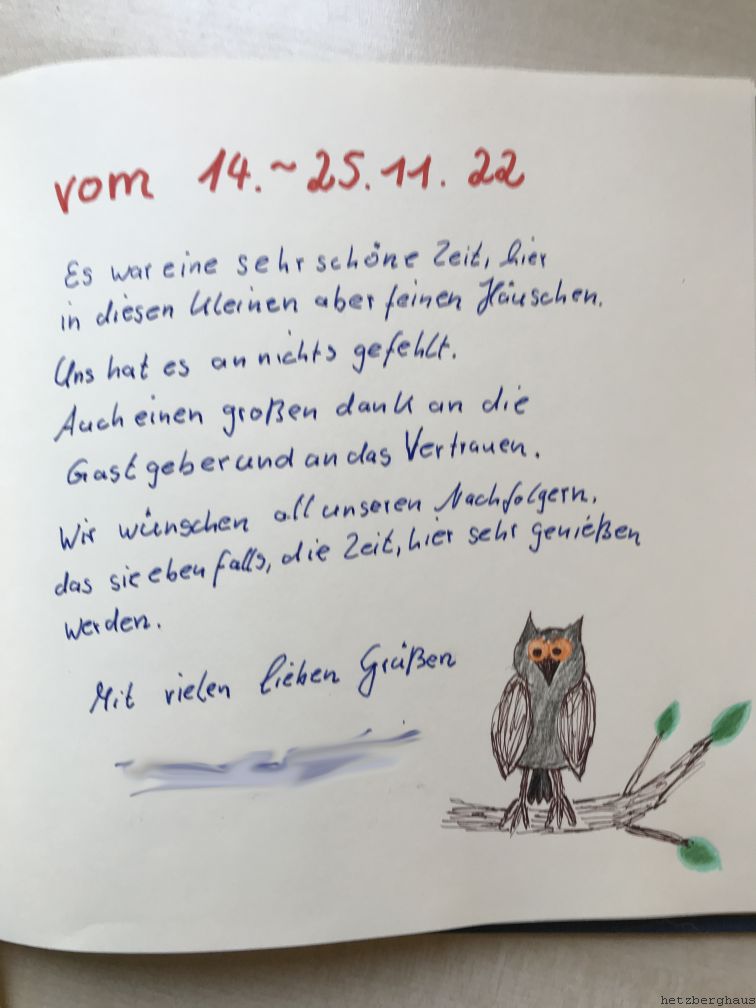 vom 14.~25.11.22
Es war eine sehr schöne Zeit, hier
in diesen kleinen aber feinen Häuschen.
Uns hat es an nichts gefehlt.
Auch einen großen dank an die
Gastgeber und an das Vertrauen.
Wir wünschen all unseren Nachfolgern,
das sie ebenfalls, die Zeit, hier sehr genießen
werden.
Mit vielen lieben Grüßen
hetzberghaus